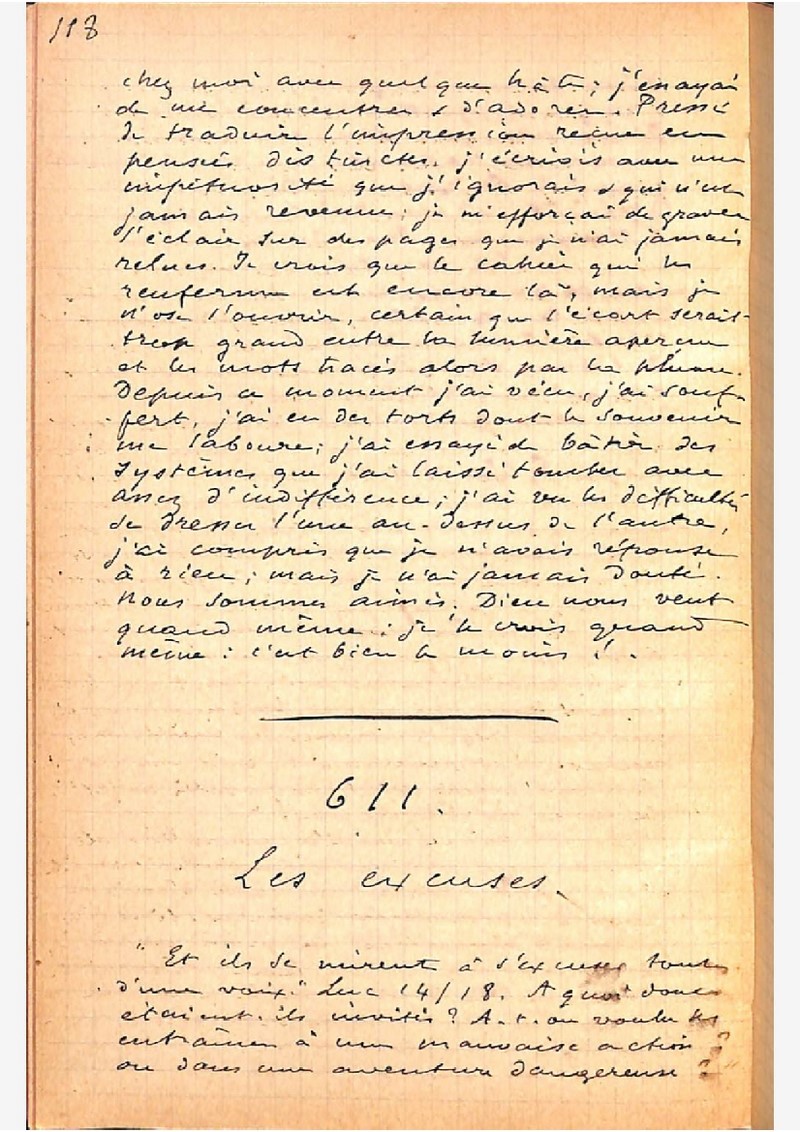 118
chez moi avec quelque hâte ; j'essayai
de me concentrer & d'adorer. Pressé
de traduire l'impression reçue en
pensées distinctes, j'écrivis avec une
impétuosité que j'ignorais & qui n'est
jamais revenue ; je m'efforçai de graver
l'éclair sur des pages que je n'ai jamais
relues. Je crois que le cahier qui les
renferme est encore là, mais je
n'ose l'ouvrir, certain que l'écart serait
trop grand entre la lumière aperçue
et les mots tracés alors par la plume.
Depuis ce moment j'ai vécu, j'ai souf-
fert, j'ai eu des torts dont le souvenir
me laboure ; j'ai essayé de bâtir des
systèmes que j'ai laissé tomber avec
assez d'indifférence ; j'ai vu les difficultés
se dresser l'une au-dessus de l'autre,
j'ai compris que je n'avais réponse
à rien ; mais je n'ai jamais douté.
Nous sommes aimés. Dieu nous veut
quand même : je le crois quand
même : c'est bien le moins !.
611.
Les excuses.
" Et ils se mirent à s'excuser tous
d'une voix." Luc 14/18. A quoi donc
étaient-ils invités ? A-t-on voulu les
entraîner à une mauvaise action ?
ou dans une aventure dangereuse ?